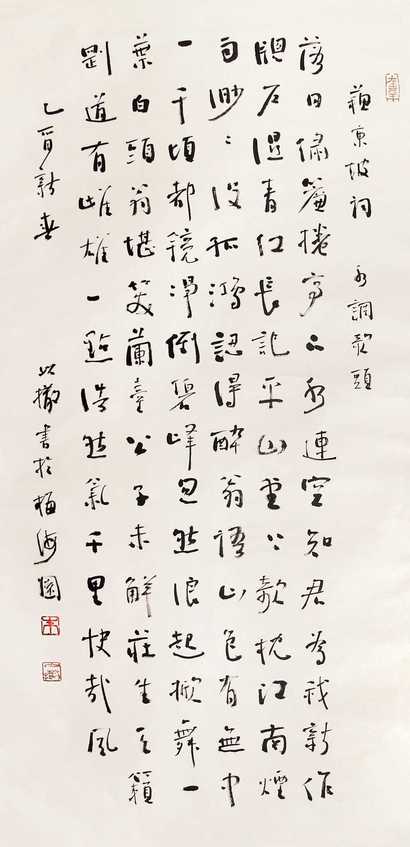 蘇東坡詞 水調歌頭
落日繡簾捲亭下水連空知君為我新作
牕户濕青红長記平山堂上欹枕江南煙
雨渺〻没孤鴻認得醉翁語山色有無中
一千頃都鏡淨倒碧峰忽然浪起掀舞一
葉白頭翁堪笑蘭臺公子未解莊生天籟
剛道有雌雄一點浩然氣千里快哉風
乙酉新春 以撤書於梅海園